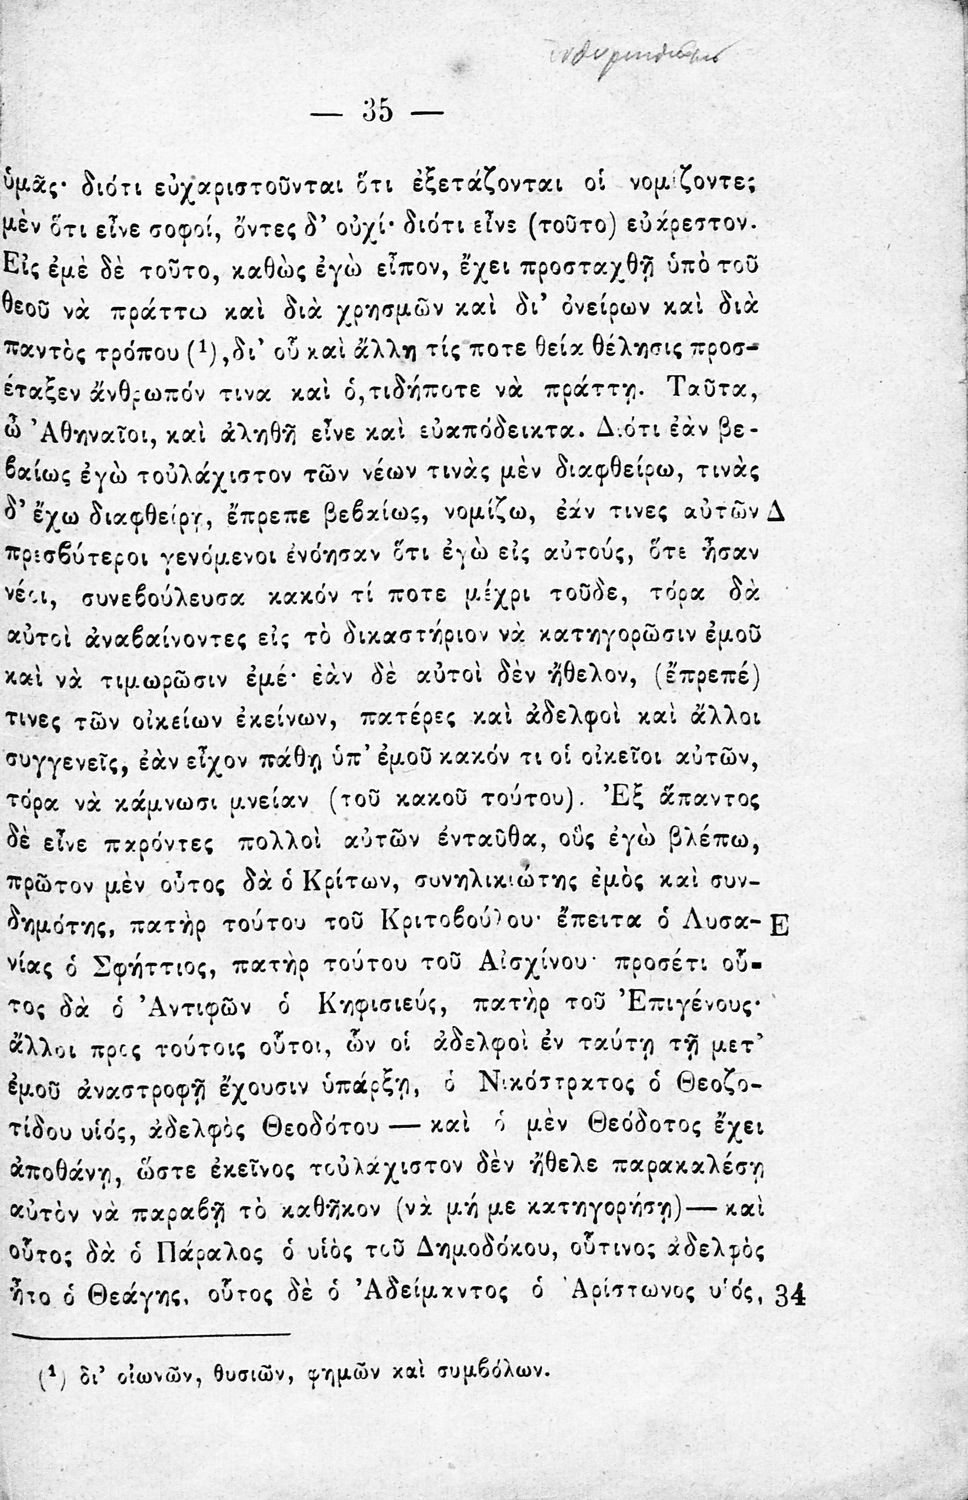 — 35 —
ὑμᾶς· διότι εὐχαριστοῦνται ὅτι ἐξετάζονται οἱ νομίζοντες
μὲν ὅτι εἶνε σοφοί, ὄντες δ' οὐχί· διότι εἶνε (τοῦτο) εὐάρεστον.
Εἰς ἐμὲ δὲ τοῦτο, καθὼς ἐγὼ εἶπον, ἔχει προσταχθῆ ὑπὸ τοῦ
θεοῦ νὰ πράττω καὶ διὰ χρησμῶν καὶ δι' ὀνείρων καὶ διὰ
παντὸς τρόπου (¹), δι' οὗ καὶ ἄλλη τίς ποτε θεία θέλησις προσ-
έταξεν ἄνθρωπόν τινα καὶ ὁ,τιδήποτε νὰ πράττῃ. Ταῦτα,
ὦ Ἀθηναῖοι, καὶ ἀληθῆ εἶνε καὶ εὐαπόδεικτα. Διότι ἐὰν βε-
βαίως ἐγὼ τοὐλάχιστον τῶν νέων τινὰς μὲν διαφθείρω, τινὰς
δ' ἔχω διαφθείρῃ, ἔπρεπε βεβαίως, νομίζω, ἐάν τινες αὐτῶν Δ
πρεσβύτεροι γενόμενοι ἐνόησαν ὅτι ἐγὼ εἰς αὐτούς, ὅτε ἦσαν
νέοι, συνεβούλευσα κακόν τί ποτε μέχρι τοῦδε, τόρα δὰ
αὐτοὶ ἀναβαίνοντες εἰς τὸ δικαστήριον νὰ κατηγορῶσιν ἐμοῦ
καὶ νὰ τιμωρῶσιν ἐμέ· ἐὰν δὲ αὐτοὶ δὲν ἤθελον, (ἔπρεπέ)
τινες τῶν οἰκείων ἐκείνων, πατέρες καὶ ἀδελφοὶ καὶ ἄλλοι
συγγενεῖς, ἐὰν εἶχον πάθῃ ὑπ' ἐμοῦ κακόν τι οἱ οἰκεῖοι αὐτῶν,
τόρα νὰ κάμνωσι μνείαν (τοῦ κακοῦ τούτου). Ἐξ ἅπαντος
δὲ εἶνε παρόντες πολλοὶ αὐτῶν ἐνταῦθα, οὓς ἐγὼ βλέπω,
πρῶτον μὲν οὗτος δὰ ὁ Κρίτων, συνηλικιώτης ἐμὸς καὶ συν-
δημότης, πατὴρ τούτου τοῦ Κριτοβούλου· ἔπειτα ὁ Λυσα- Ε
νίας ὁ Σφήττιος, πατὴρ τούτου τοῦ Αἰσχίνου· προσέτι οὗ-
τος δὰ ὁ Ἀντιφῶν ὁ Κηφισιεύς, πατὴρ τοῦ Ἐπιγένους·
ἄλλοι πρὸς τούτοις οὗτοι, ὧν οἱ ἀδελφοὶ ἐν ταύτῃ τῇ μετ'
ἐμοῦ ἀναστροφῇ ἔχουσιν ὑπάρξῃ, ὁ Νικόστρατος ὁ Θεοζο-
τίδου υἱός, ἀδελφὸς Θεοδότου — καὶ ὁ μὲν Θεόδοτος ἔχει
ἀποθάνῃ, ὥστε ἐκεῖνος τοὐλάχιστον δὲν ἤθελε παρακαλέσῃ
αὐτὸν νὰ παραβῇ τὸ καθῆκον (νὰ μή με κατηγορήσῃ) — καὶ
οὗτος δὰ ὁ Πάραλος ὁ υἱὸς τοῦ Δημοδόκου, οὗτινος ἀδελφὸς
ἦτο ὁ Θεάγης, οὗτος δὲ ὁ Ἀδείμαντος ὁ Ἀρίστωνος υἱός, 34
(¹) δι' οἰωνῶν, θυσιῶν, φημῶν καὶ συμβόλων.